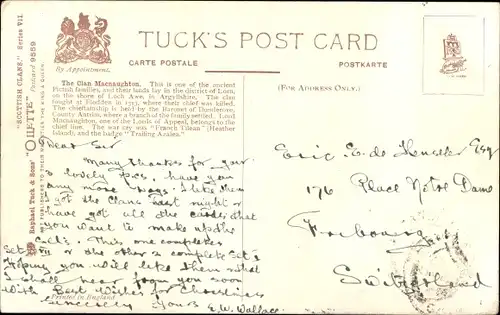 TUCK'S POST CARD
By Appointment.
CARTE POSTALE
POSTKARTE
(FOR ADDRESS ONLY.)
The Clan Macnaughton. This is one of the ancient
Pictish families, and their lands lay in the district of Lorn,
on the shore of Loch Awe, in Argyllshire. The clan
fought at Flodden in 1513, where their chief was killed.
The chieftainship is held by the Baronet of Dundarave,
County Antrim, where a branch of the family settled. Lord
Macnaughton, one of the Lords of Appeal, belongs to the
chief line. The war cry was "Fraoch Eilean" (Heather
Island), and the badge "Trailing Azalea."
"SCOTTISH CLANS." Series VII.
"OILETTE" Postcard 9559
Raphael Tuck & Sons'
Dear Sir
Many thanks for your
lovely p.cs. have you
any more? I like them
I got the Clans last night &
have got all the cards that
you want to make up the
sets. This one completes
Set VII & the other 2 complete Set 2
Hoping you will like them &
I shall hear from you soon
With Best Wishes for Christmas
Sincerely Yours E.W. Wallace.
Printed in England
Eric E. de Esq
176 Place Notre Dame
Fribourg
Switzerland